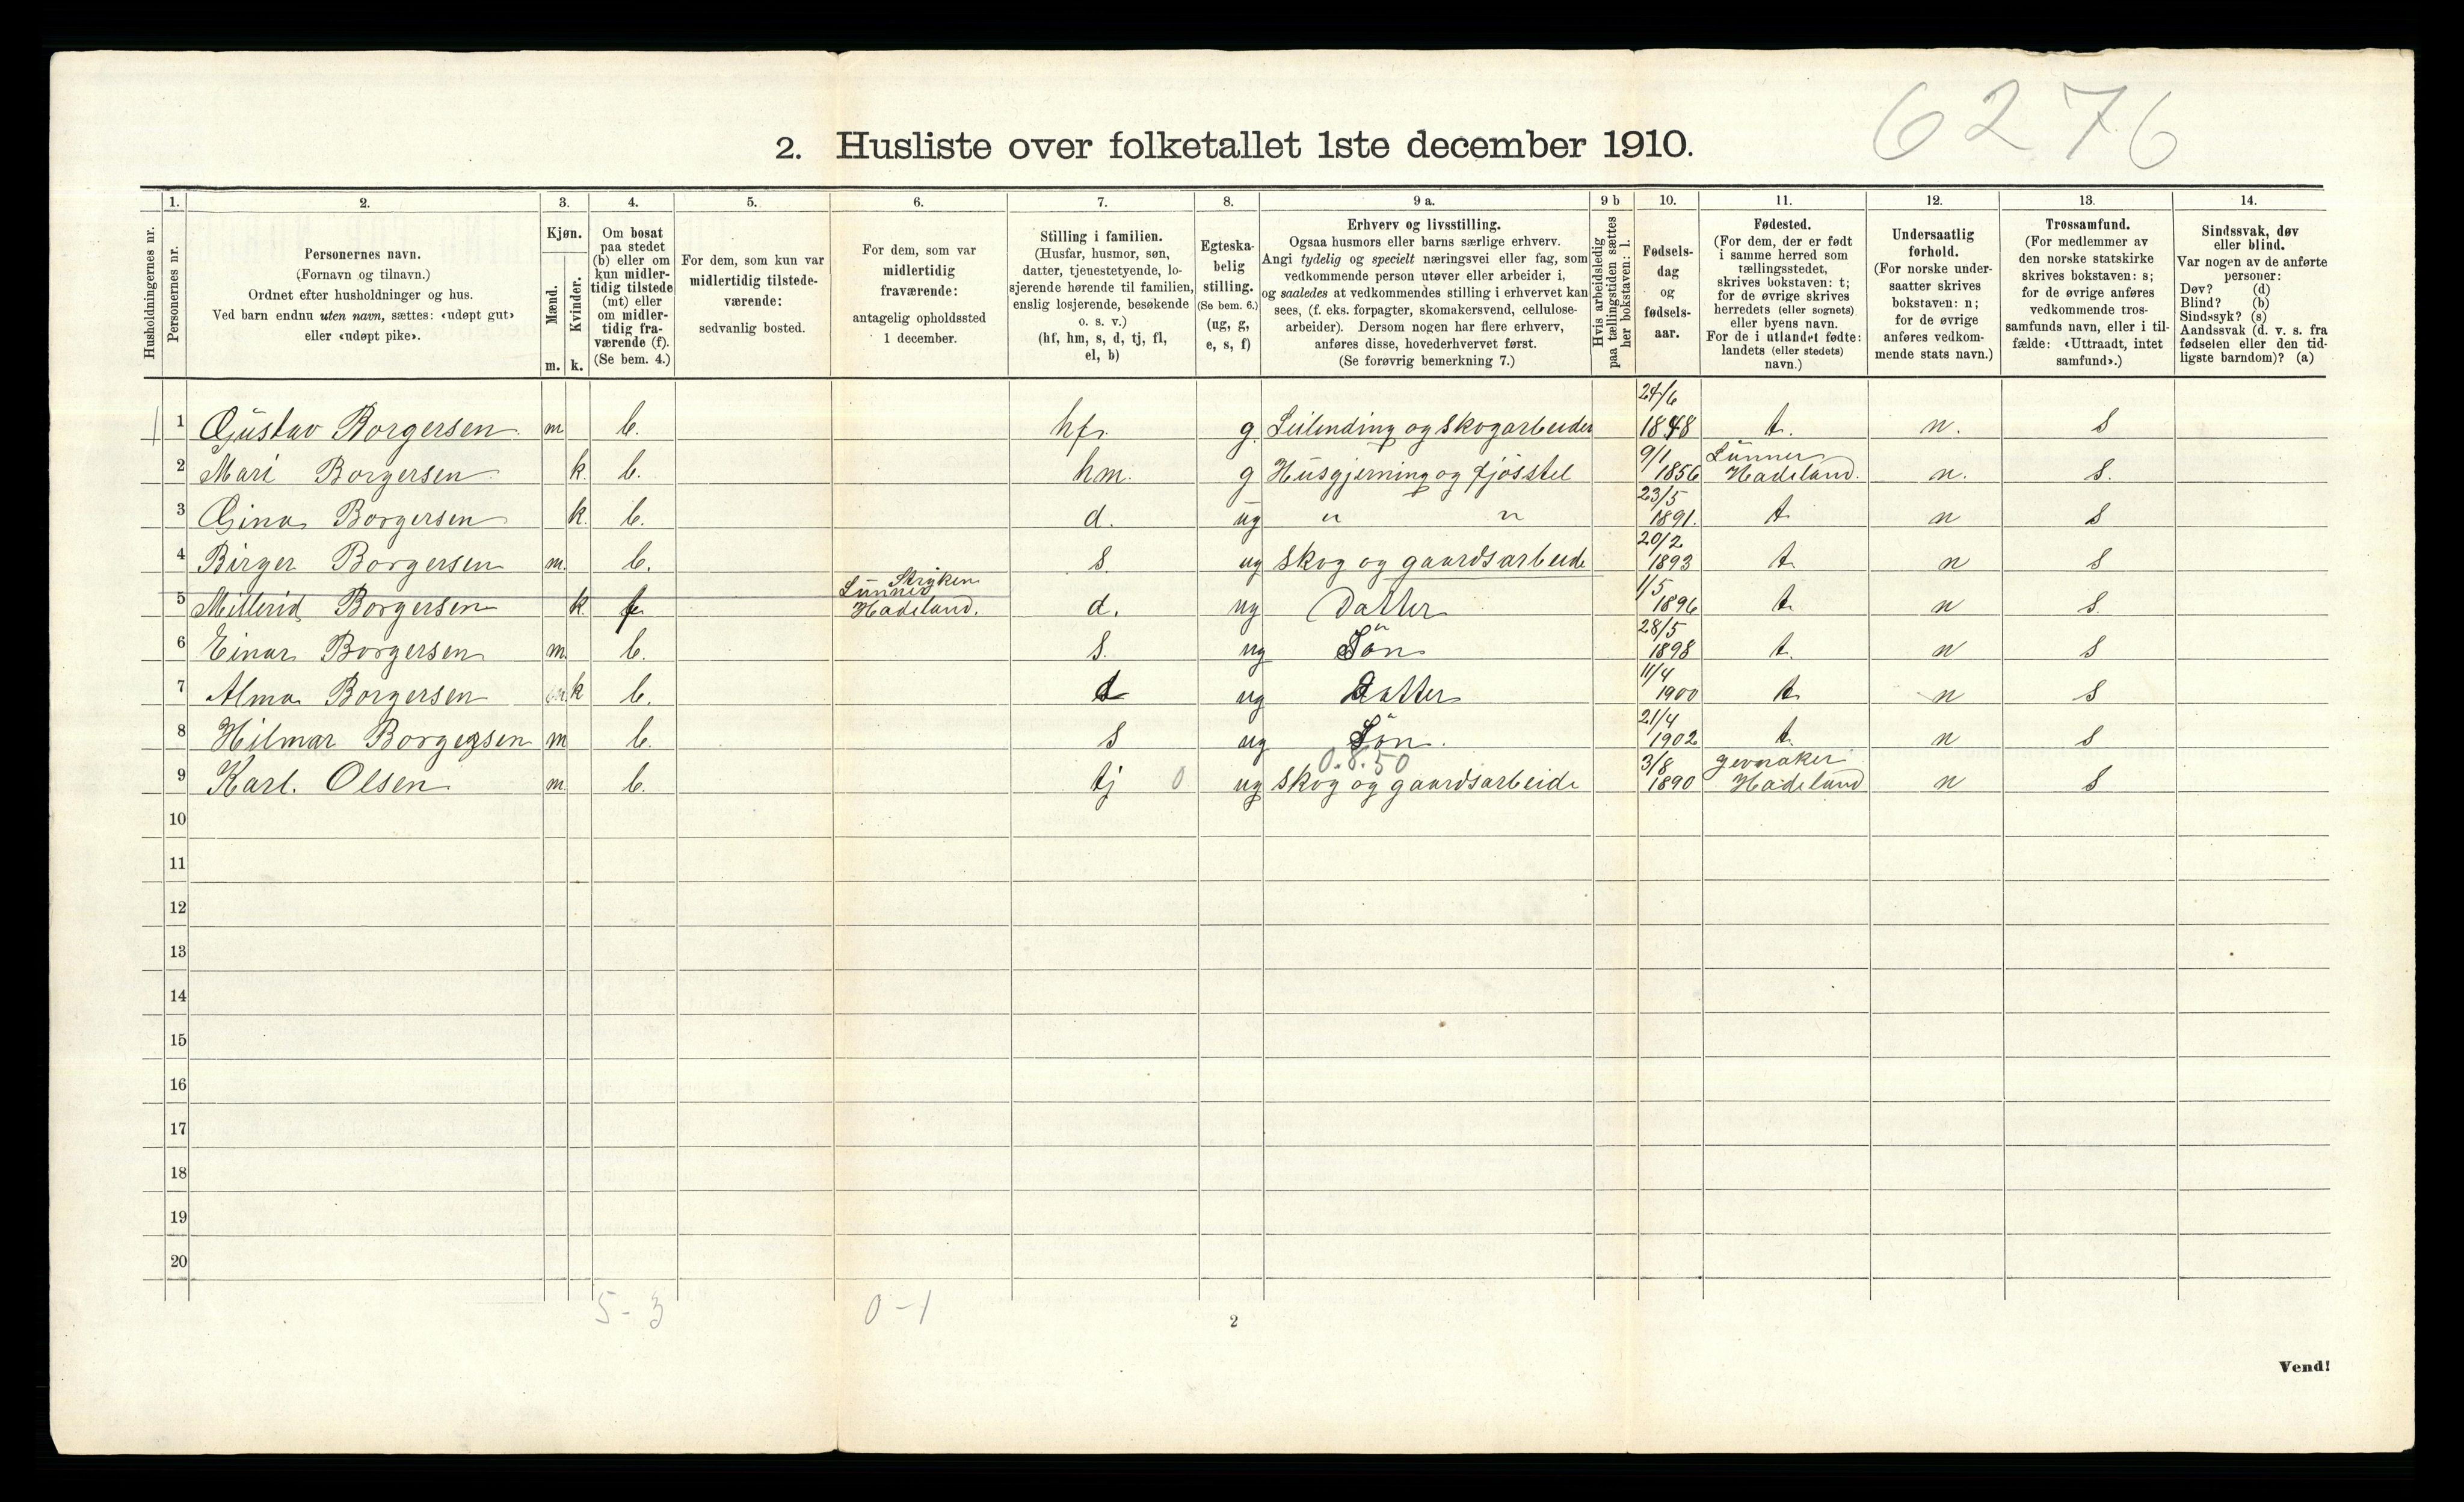 6276
2. Husliste over folketallet 1ste december 1910.
Husholdningernes nr.
1.
Personernes nr.
2.
Personernes navn.
(Fornavn og tilnavn.)
Ordnet efter husholdninger og hus.
Ved barn endnu uten navn, sættes: «udøpt gut»
eller «udøpt pike».
3.
Kjøn.
Mænd. Kvinder.
m. k.
4.
Om bosat
paa stedet
(b) eller om
kun midler-
tidig tilstede
(mt) eller
om midler-
tidig fra-
værende (f).
(Se bem. 4.)
5.
For dem, som kun var
midlertidig tilstede-
værende:
sedvanlig bosted.
6.
For dem, som var
midlertidig
fraværende:
antagelig opholdssted
1 december.
7.
Stilling i familien.
(Husfar, husmor, søn,
datter, tjenestetyende, lo-
sjerende hørende til familien,
enslig losjerende, besøkende
o. s. v.)
(hf, hm, s, d, tj, fl,
el, b)
8.
Egteska-
belig
stilling.
(Se bem. 6.)
(ug, g,
e, s, f)
9 a.
Erhverv og livsstilling.
Ogsaa husmors eller barns særlige erhverv.
Angi tydelig og specielt næringsvei eller fag, som
vedkommende person utøver eller arbeider i,
og saaledes at vedkommendes stilling i erhvervet kan
sees, (f. eks. forpagter, skomakersvend, cellulose-
arbeider). Dersom nogen har flere erhverv,
anføres disse, hovederhvervet først.
(Se forøvrig bemerkning 7.)
9 b
Hvis arbeidsledig
paa tællingstiden sættes
her bokstaven: l.
10.
Fødsels-
dag
og
fødsels-
aar.
11.
Fødested.
(For dem, der er født
i samme herred som
tællingsstedet,
skrives bokstaven: t;
for de øvrige skrives
herredets (eller sognets)
eller byens navn.
For de i utlandet fødte:
landets (eller stedets)
navn.)
12.
Undersaatlig
forhold.
(For norske under-
saatter skrives
bokstaven: n;
for de øvrige
anføres vedkom-
mende stats navn.)
13.
Trossamfund.
(For medlemmer av
den norske statskirke
skrives bokstaven: s;
for de øvrige anføres
vedkommende tros-
samfunds navn, eller i til-
fælde: «Uttraadt, intet
samfund».)
14.
Sindssvak, døv
eller blind.
Var nogen av de anførte
personer:
Døv? (d)
Blind? (b)
Sindssyk? (s)
Aandssvak (d. v. s. fra
fødselen eller den tid-
ligste barndom)? (a)
1 Gustav Borgersen m b. hf. g. Leilending og skogarbeider 24/6 1848 t. n. s
2 Mari Borgersen k. b. hm. g Husgjerning og fjösstel 9/1 1856 Lunner Hadeland. n. s.
3 Gina Borgersen k. b. d. ug " " 23/5 1891. t n s
4 Birger Borgersen m. b. s. ug skog og gaardsarbeide 20/2 1893 t n s
5 Borgersen k f Stryken Lunner Hadeland. d. ug Datter 1/5 1896 t n s.
6 Einar Borgersen m. b. s. ug Sön 28/5 1898 t. n s
7 Alma Borgersen k b. d ug datter 11/4 1900 t n s
8 Hilmar Borgersen m b. s ug Sön. 21/4 1902 t. n s
0.8.50
9 Karl. Olsen m. b. tj 0 ug skog og gaardsarbeide 3/8 1890 gevnaker Hadeland n s
10
11
12
13
14
15
16
17
18
19
20
5-3 0-1
2
Vend!